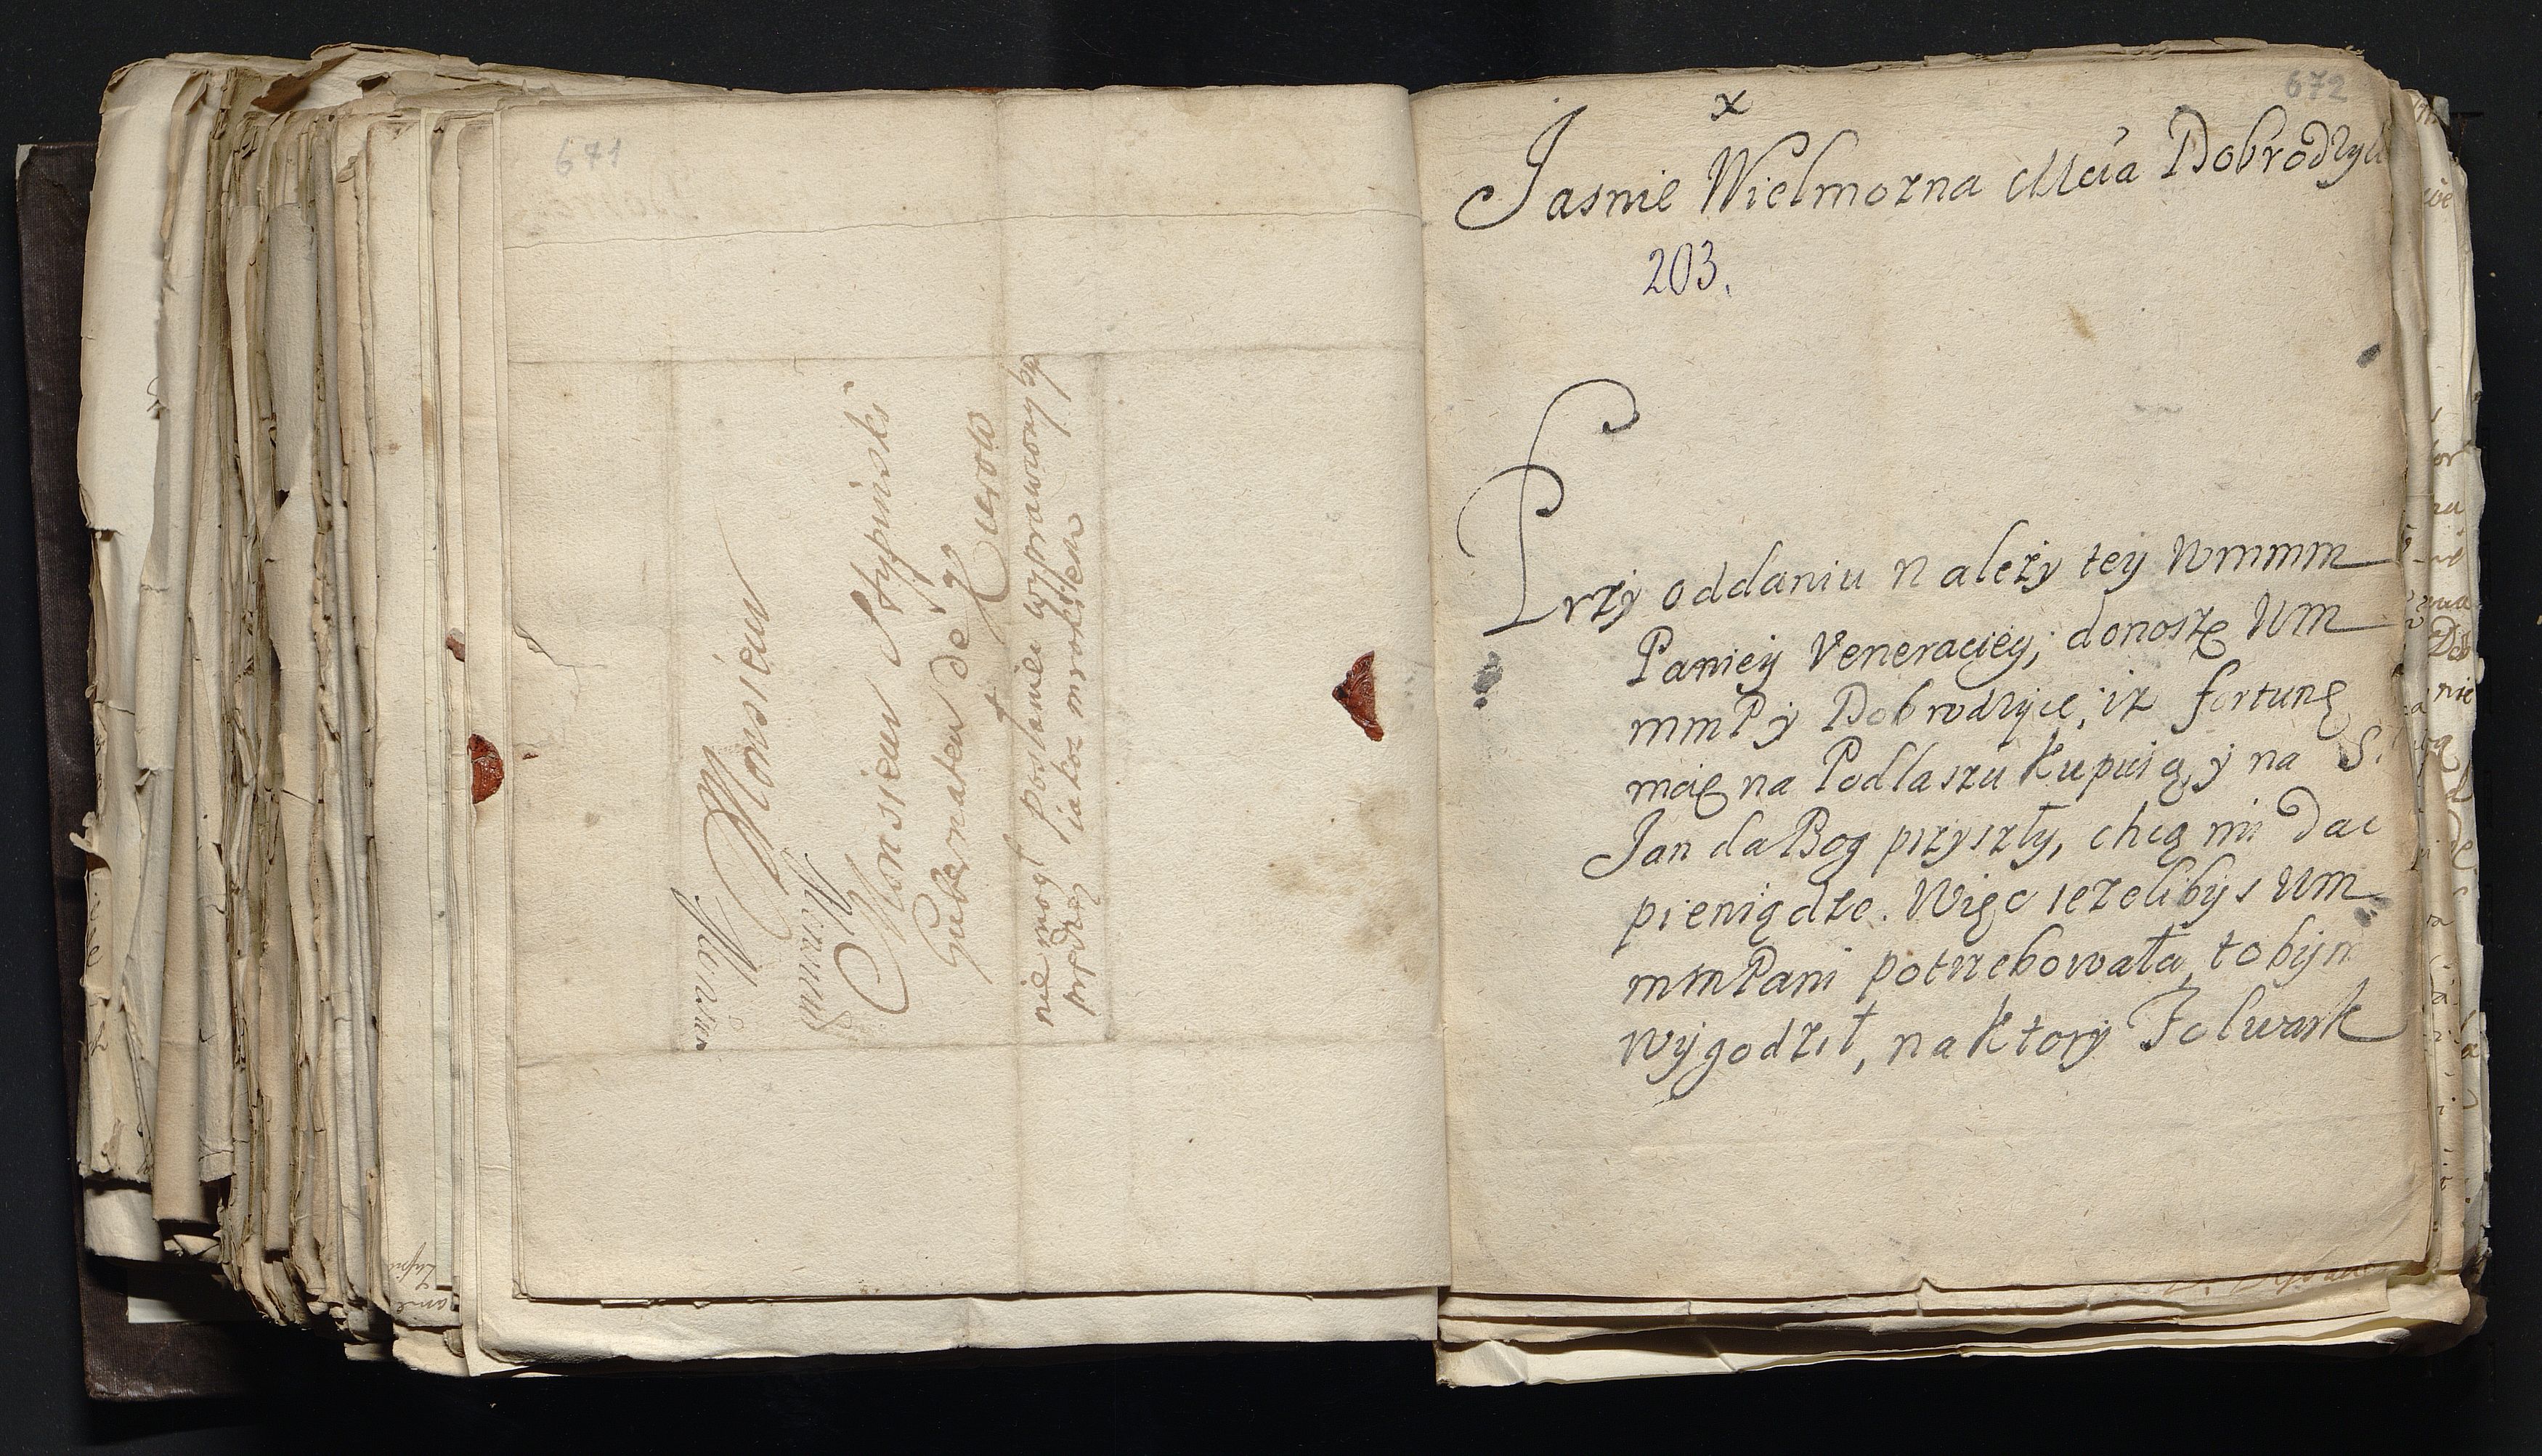 671
Monsieur
Monsieur Stypinski
Gubernateu de Kuerow
nie mogl postaniec wyprawiony byc
prędzey iakoz mroksten
672
x
Jasnie Wielmozna Mcia Dobrodzyi
203.
Przy oddaniu należy tey Wmmm
Paniey Veneracyey, donoszę Wm
mmPy Dobrodzyce, iz fortunę
moię na Podlaszu Kupuią, y na S.
Jan da Bog przyszły, chcą mi dac
pieniądze. Więc iezelibys Wm
mmPani potrzebowała, tobym
wygodził, na Ktory Folwark